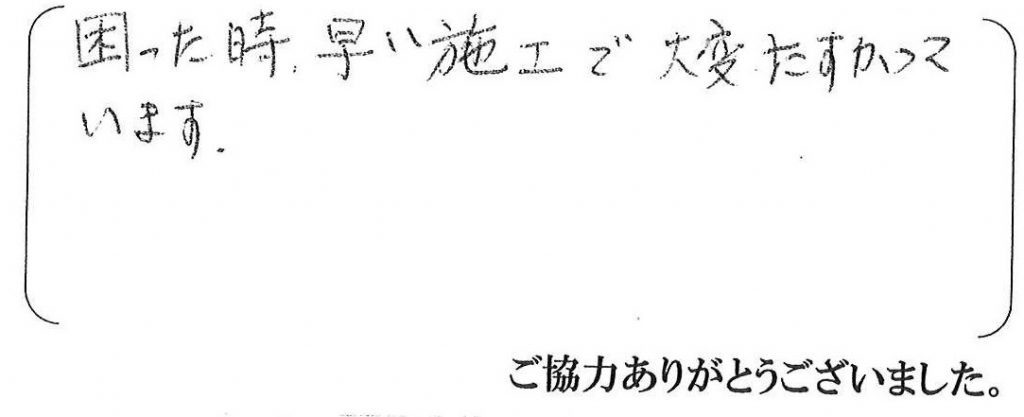 困った時、早い施工で大変たすかって
います.
ご協力ありがとうございました。